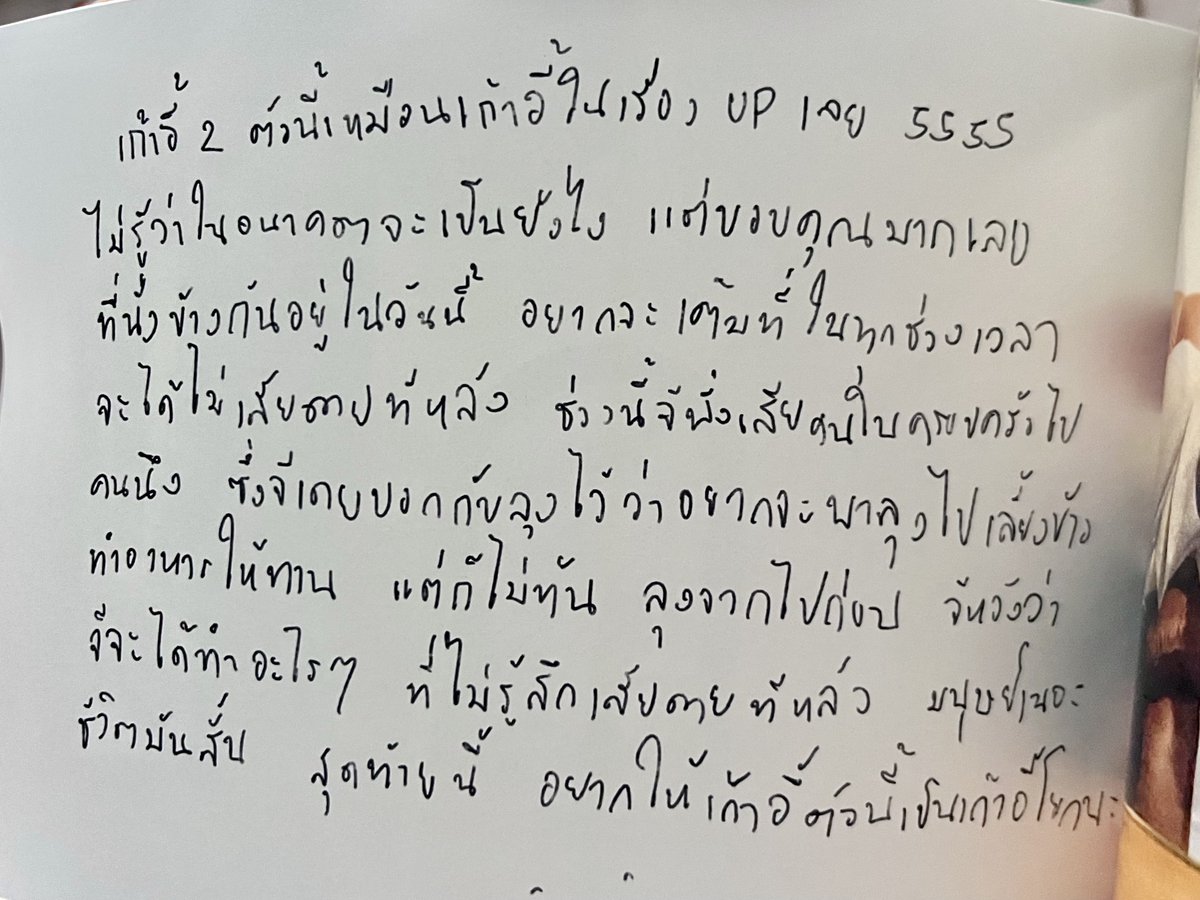 เก้าอี้ 2 ตัวนี้เหมือนเก้าอี้ในเรื่อง UP เลย 5555
ไม่รู้ว่าในอนาคตจะเป็นยังไง แต่ขอบคุณมากเลย
ที่นั่งข้างกันอยู่ในวันนี้ อยากจะเต็มที่ในทุกช่วงเวลา
จะได้ไม่เสียดายทีหลัง ช่วงนี้จีพึ่งเสียคนในครอบครัวไป
คนนึง ซึ่งจีเคยบอกกับลุงไว้ว่าอยากจะพาลุงไปเลี้ยงข้าว
ทำอาหารให้ทาน แต่ก็ไม่ทัน ลุงจากไปก่อน จีหวังว่า
จีจะได้ทำอะไรๆ ที่ไม่รู้สึกเสียดายทีหลัง มนุษย์เนอะ
ชีวิตมันสั้น สุดท้ายนี้ อยากให้เก้าอี้ตัวนี้เป็นเก้าอี้โยกนะ